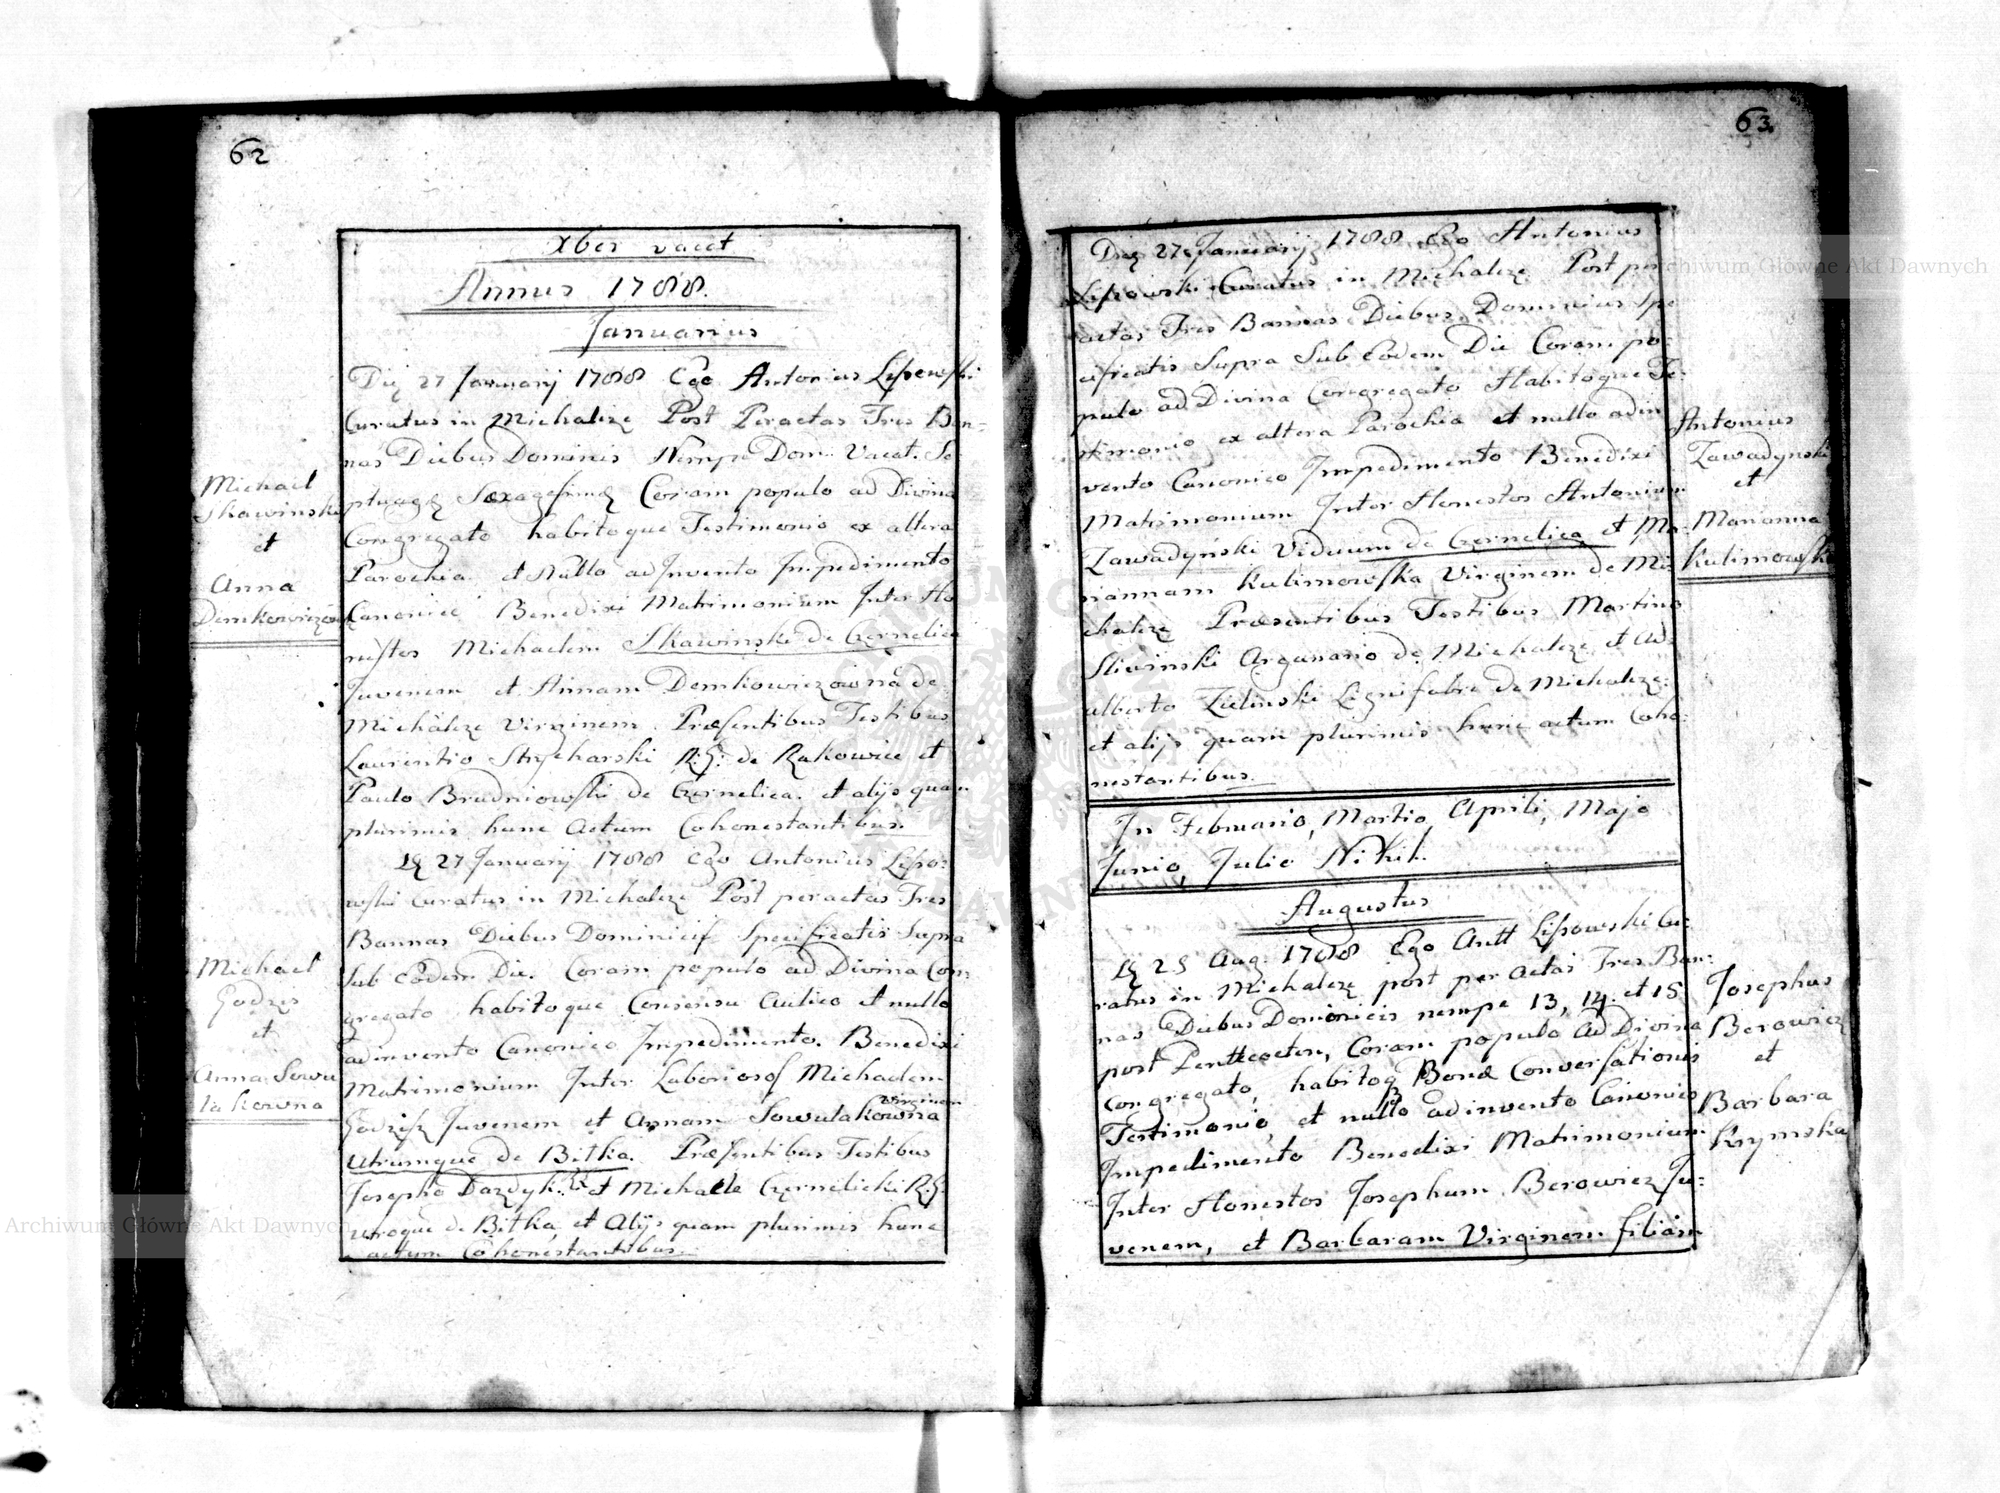 62
Xber vacat
Annus 1788.
Januarius
Michael
Skawinski
et
Anna
Demkowiczowna
Diej 27 Januarij 1788 Ego Antonius Lipowski
Curatus in Michalcze Post Peractas Tres Ban-
nas Diebus Dominis Nempe Dom. Vacat. Se
ptuagę Sexagesimę Coram populo ad Divina
Congregato habitoque Testimonio ex altera
Parochia et Nullo adInvento Impedimento
Canonico Benedixi Matrimonium Inter Ho
nestos Michaelem Skawinski de Czernelica
Juvenem et Annam Demkowiczowna de
Michalcze Virginem Præsentibus Testibus
Laurentio Strycharski R:G: de Rakowice et
Paulo Brudniowski de Czernelica. et alijs quam
plurimis hunc Actum Cohonestantibus.
Michael
Godzis
et
Anna Sowu
lakowna
27 Januarij 1788 Ego Antonius Lipo-
wski Curatus in Michalcze Post peractas Tres
Bannas Diebus Dominicis Specificatis Supra
Sub Eodem Die. Coram populo ad Divina Con
gregato habitoque Consensu Aulico et nullo
adinvento Canonico Impedimento. Benedixi
Matrimonium Inter Laboriosos Michaelem
virginem
Godzisz Juvenem et Annam Sowulakowna
Utrumque de Bitka. Præsentibus Testibus
Josepho et Michaele Czernelicki R.G.
utroque de Bitka, et Alijs quam plurimis hunc
actum Cohonestantibus.
63
Diej 27 Januarij 1788 Ego Antonius
Lipowski Curatus in Michalcze Post per
actas Tres Bannas Diebus Dominicis Spe
cificatis Supra Sub Eodem Die Coram po-
pulo ad Divina Congregato Habitoque Te-
stimonio ex altera Parochia et nullo adin
vento Canonico Impedimento Benedixi
Matrimonium Inter Honestos Antonium
Zawadyński Viduum de Czernelica et Ma-
riannam Kulimowska Virginem de Mi
chalcze Præsentibus Testibus Martino
Sliwinski Organario de Michalcze et Ad-
alberto Zielinski Lignifabro de Michalcze
et alijs quam plurimis hunc actum Coho-
nestantibus.
Antonius
Zawadynski
et
Marianna
Kulimowska
In Februario, Martio, Aprili, Majo
Junio, Julio Nihil.
Augustus
25 Aug: 1788 Ego Antt Lipowski Cu-
ratus in Michalcze post per actas Tres Ban-
nas Diebus Dominicis nempe 13, 14. et 15
post Penttecosten, Coram populo Ad Divina
congregato, habitoq Bonæ Conversationis
Testimonio et nullo adinvento Canonico
Impedimento Benedixi Matrimonium
Inter Honestos Josephum Berowicz Ju-
venem, et Barbaram Virginem filiam
Josephus
Berowicz
et
Barbara
Krymska
Archiwum Główne Akt Dawnych
Archiwum Główne Akt Dawnych